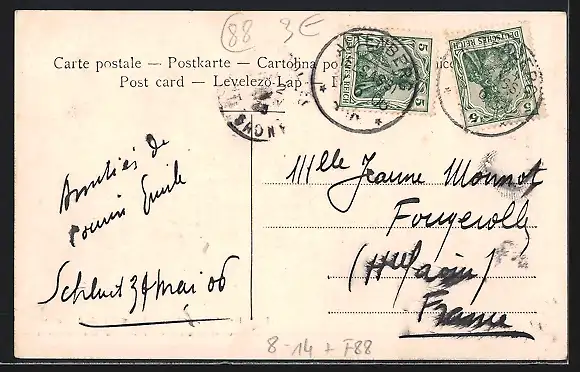 88 3E
Carte postale — Postkarte — Cartolina
Post card — Levelező-Lap —
5 DEUTSCHES REICH 5
DEUTSCHES REICH 5
Amitiés de
cousin Emile
Schlucht 31 mai 06
Mlle Jeanne Monnot
Fougerolles
(Hte
France
8-14 + F88